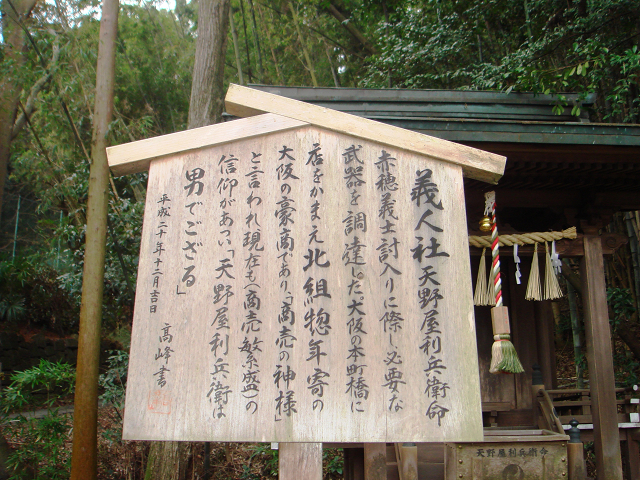 義人社 天野屋利兵衛命
赤穂義士討入りに際し必要な
武器を調達した大阪の本町橋に
店をかまえ北組惣年寄の
大阪の豪商であり、「商売の神様」
と言われ現在も(商売繁盛)の
信仰があつい「天野屋利兵衛は
男でござる」
平成二十年十二月吉日 高峰書
天野屋利兵衛命